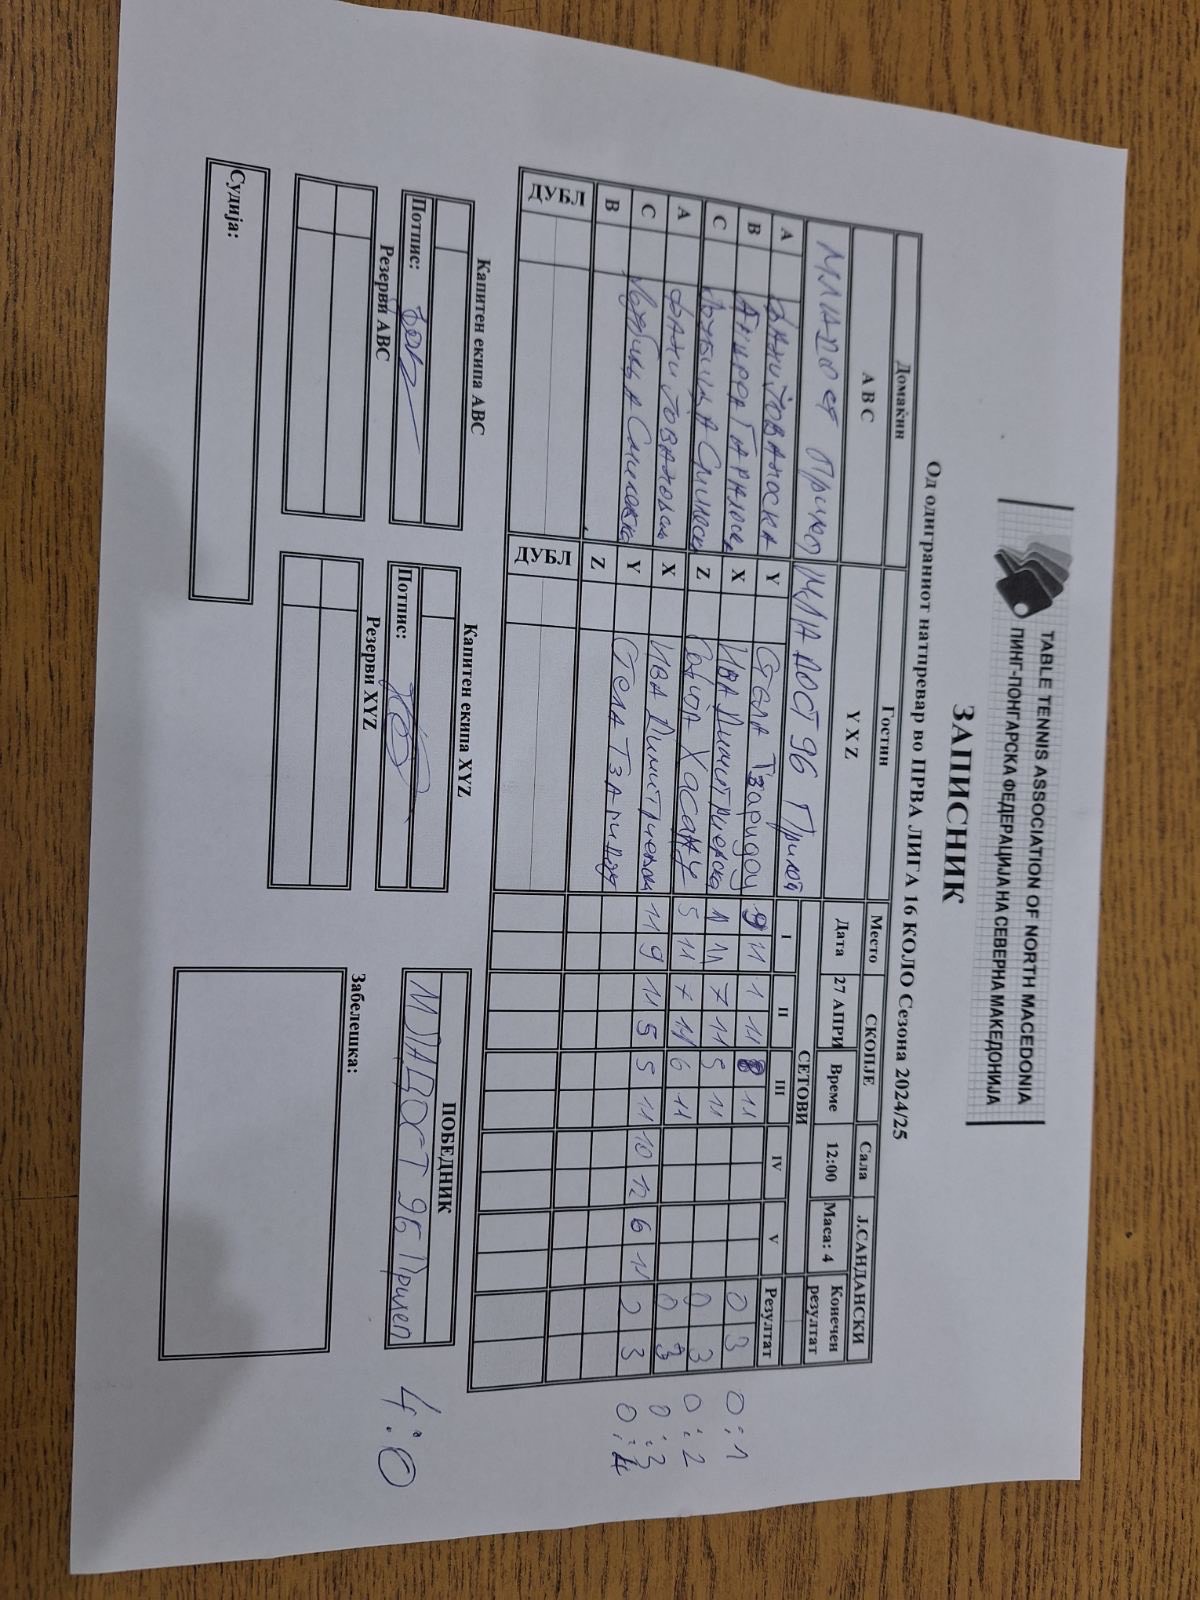 TABLE TENNIS ASSOCIATION OF NORTH MACEDONIA
ПИНГ-ПОНГАРСКА ФЕДЕРАЦИЈА НА СЕВЕРНА МАКЕДОНИЈА
ЗАПИСНИК
Од одиграниот натпревар во ПРВА ЛИГА 16 КОЛО Сезона 2024/25
Домаќин Гостин Место СКОПЈЕ Сала Ј.САНДАНСКИ
A B C Y X Z Дата 27 АПРИ Време 12:00 Маса: 4 Конечен резултат
Прилеп МЛАДОСТ 96 Прилеп СЕТОВИ
I II III IV V Резултат
A Јованоска Y Стела 9 11 1 11 8 11 0 3 0:1
B Андреа X Ива Димитриевска 1 11 7 11 5 11 0 3 0:2
C Z Хасану 5 11 7 11 6 11 0 3 0:3
A X Ива 11 9 11 5 5 11 10 12 6 11 2 3 0:4
C Y Стела
B Z
ДУБЛ ДУБЛ
Капитен екипа ABC Капитен екипа XYZ ПОБЕДНИК
Потпис: Потпис: МЛАДОСТ 96 Прилеп 4:0
Резерви ABC Резерви XYZ Забелешка:
Судија: